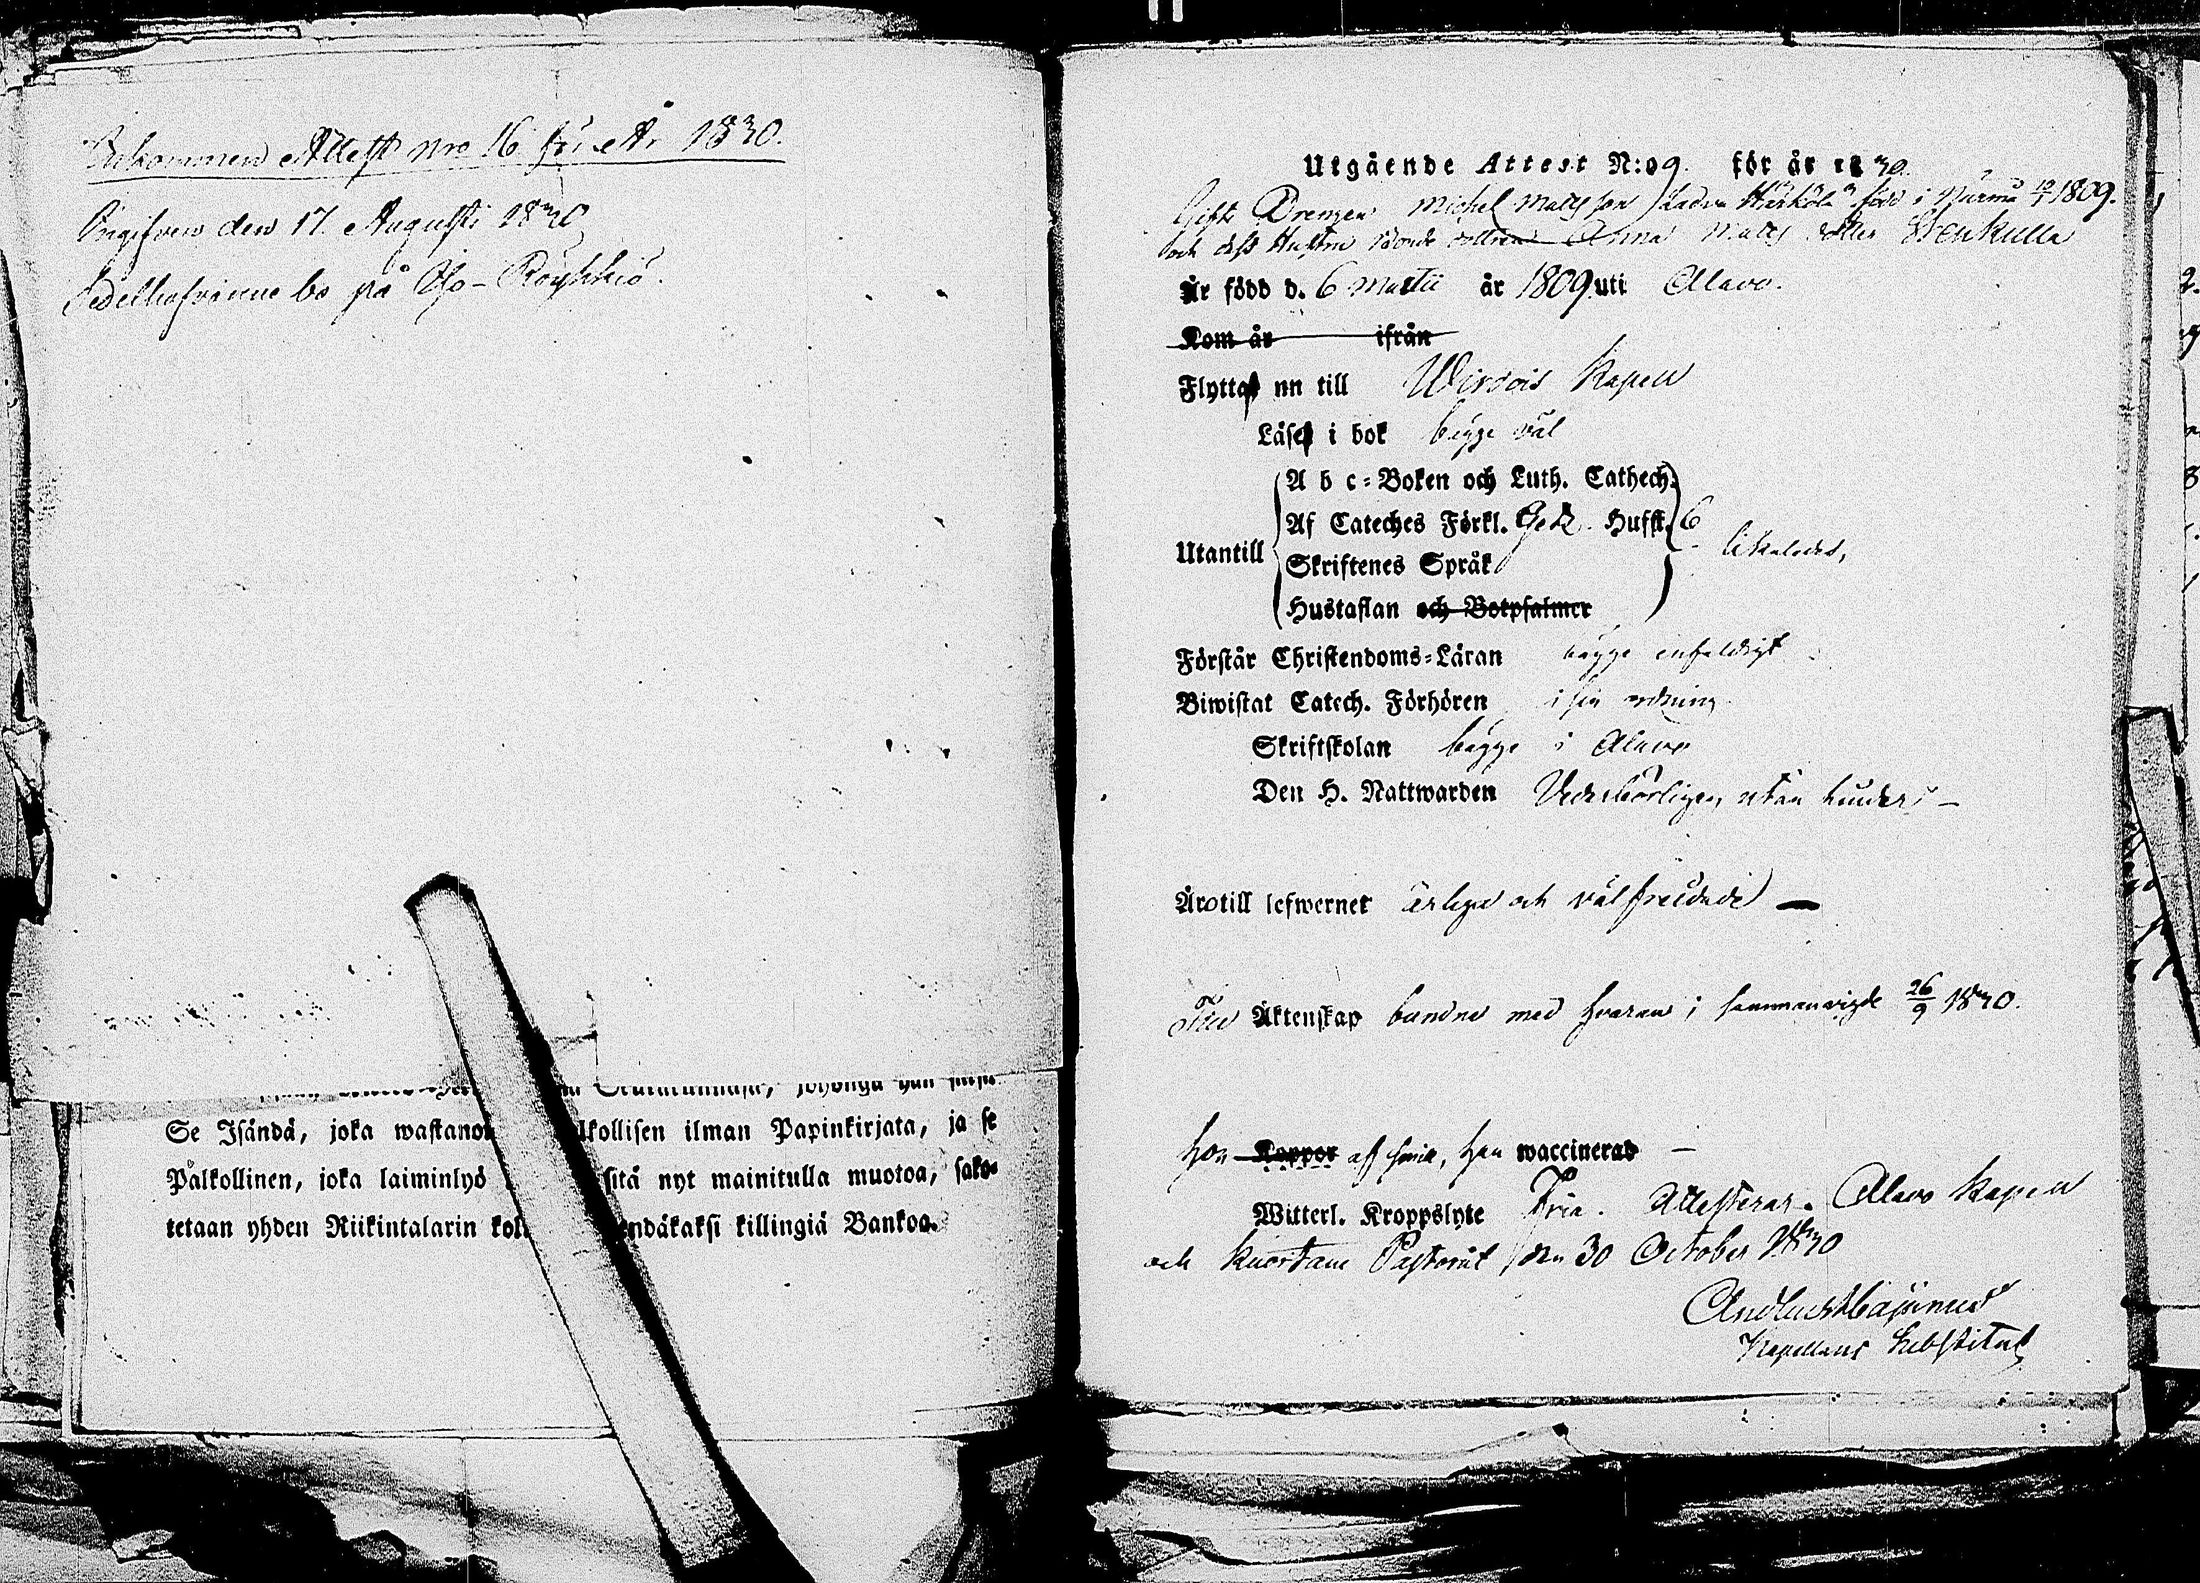 Inkommen Attest nro 16 för År 1830.
Ingifven den 17. Augusti 1830
Sedelhafvarne bo på Yso-Röykkiö.
Se Isändä, joka ilman Papinkirjata, ja se
Palkollinen, joka laiminlyö sitä nyt mainitulla muotoa, sako-
tetaan yhden Riikintalarin killingiä Bankoa.
Utgående Attest N:o 9. för år 1830.
Gifte Drengen Michel Mattsson född i 1809.
och dess Hustru Bonde dottren Anna Matts dotter Stenkulla
Är född d. 6 Martii år 1809 uti Alavo.
Kom år ifrån
Flytta nu till Wirdois Kapell
Läse i bok bägge väl
A b c-Boken och Luth. Cathech.
Af Cateches Förkl. Hufst. 6
Utantill likaledes,
Skriftenes Språk
Hustaflan och Botpsalmer
Förstår Christendoms-Läran bägge enfaldigt
Biwistat Catech. Förhören i sin ordning
Skriftskolan bägge i Alavo
Den H. Nattwarden Vederbörligen, utan hinder –
Äro till lefwernet ärliga och välfrejdade –
Äktenskap bundne med hvaran; sammanvigde 26/9 1830.
hon Koppor af sina, han waccinerad –
Witterl. Kroppslyte Fria. Attesterar. Alavo Kapell
och Kuortane Pastorat den 30 October 1830
Kapellans Substitut